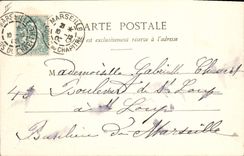 MARSEILLE
CARTE POSTALE
est exclusivement réservé à l'adresse
Mademoiselle Gabrielle
43 Boulevard de St Loup
à St Loup
Banlieue de Marseille